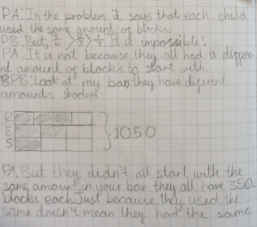 PA: In the problem it says that each child
used the same amount of blocks.
PB: But, > > It is impossible!
PA: It is not because they all had a differen
t amount of blocks to start with.
PB: Look at my bar, they have different
amounts shaded.
K
E
S
1050
PA: But they didn't all start with the
same amount in your bar they all have 350
blocks each. Just because they used the
same doesn't mean they had the same